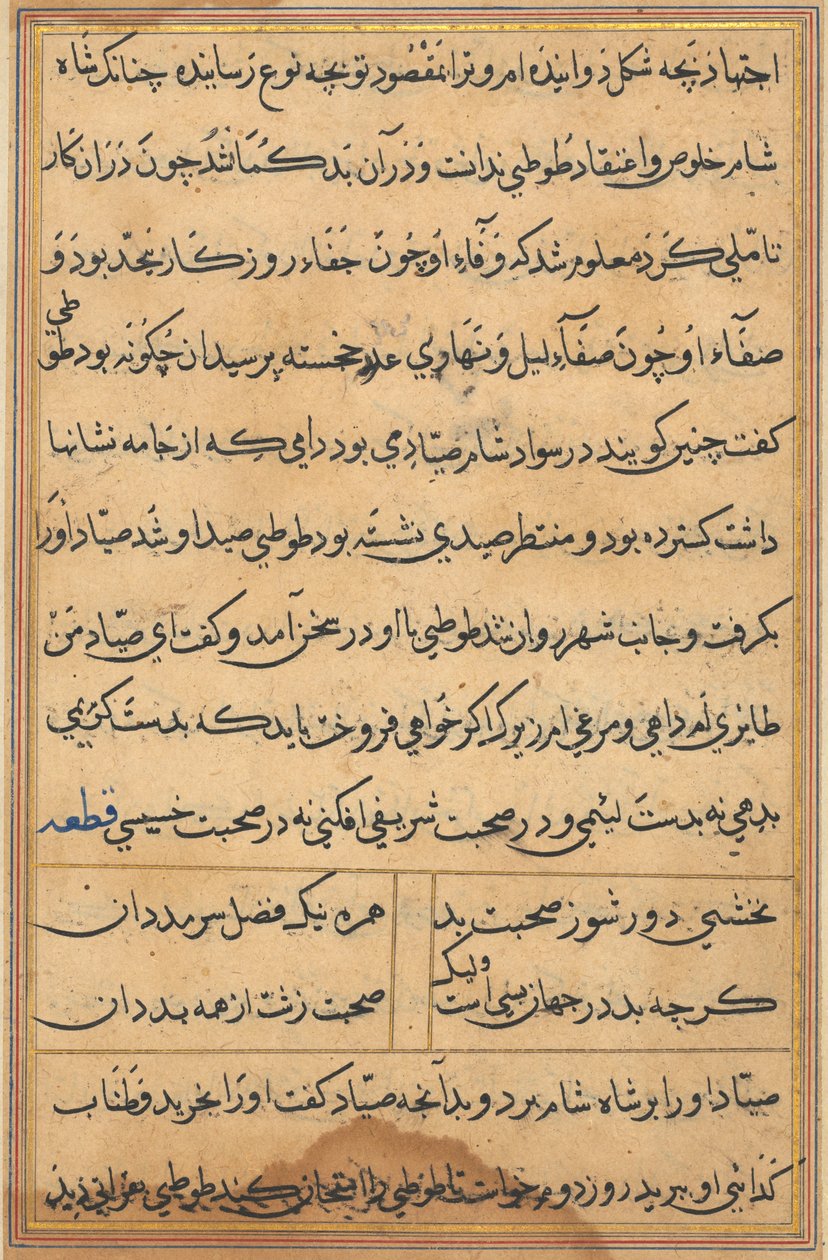 اجتهاد بچه شکل دوانیده ام و ترا بمقصود تو بچه نوع رسانیده چنانک شاه
شام خلوص و اعتقاد طوطی ندانست و در آن بد کمان شد چون در ان کار
تاملی کرد معلوم شد که وفاء او چون جفاء روزکار بیحد بود و
صفاء او چون صفاء لیل و نهاری عد خجسته پرسید ان چکونه بود طوطی
کفت چنین کویند در سواد شام صیادمی بود دامی که از جامه نشانها
داشت کسترده بود و منتظر صیدی نشسته بود طوطی صید او شد صیاد اورا
بکرفت و جانب شهر روان شد طوطی با او در سخن آمد و کفت ای صیاد من
طایری ام داهی و مرغی ام زیرک اکر خواهی فروخت باید که بدست کریمی
بدهی نه بدست لئیمی و در صحبت شریفی افکنی نه در صحبت خسیسی قطعه
نخشبی دور شو ز صحبت بد همره نیک فضل سرمد دان
کرچه بد در جهان بسی است ولیک صحبت زشت از همه بد دان
صیاد او را بر شاه شام برد و بدآنجه صیاد کفت اورا بخرید و طناب
کدائی او ببرید روز دوم خواست تا طوطی را امتحان کند طوطی بفراتی